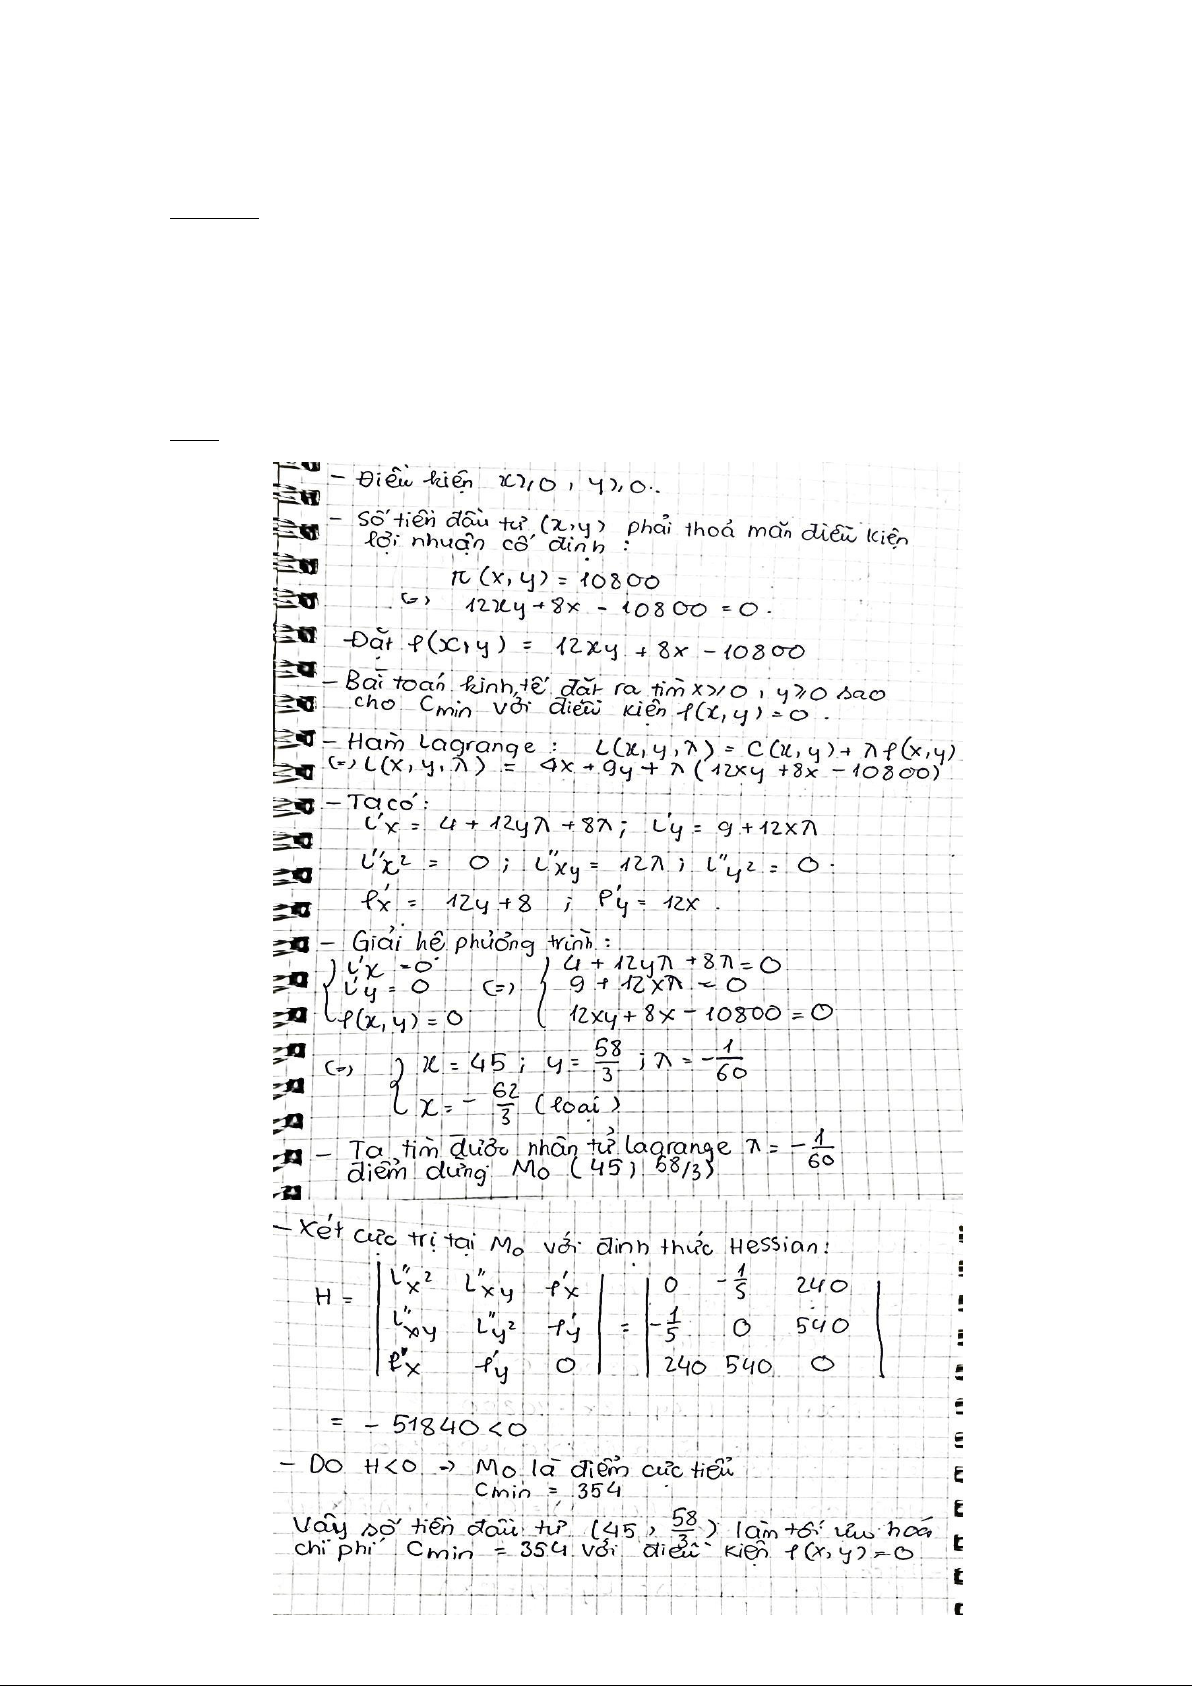 - Điều kiện x ≥ 0 , y ≥ 0.
- Số tiền đầu tư (x,y) phải thoả mãn điều kiện
lợi nhuận cố định :
π(x,y) = 10800
(=) 12xy + 8x - 10800 = 0.
- Đặt f(x,y) = 12xy + 8x - 10800
- Bài toán kinh tế đặt ra tìm x ≥ 0 , y ≥ 0 sao
cho Cmin với điều kiện f(x,y) = 0 .
- Hàm Lagrange : L(x,y,λ) = C(x,y) + λf(x,y)
(=) L(x,y,λ) = 4x + 9y + λ(12xy + 8x - 10800)
- Ta có :
L'x = 4 + 12yλ + 8λ ; L'y = 9 + 12xλ
L''x² = 0 ; L''xy = 12λ ; L''y² = 0 .
f'x = 12y + 8 ; f'y = 12x .
- Giải hệ phương trình :
{ L'x = 0 { 4 + 12yλ + 8λ = 0
L'y = 0 (=) 9 + 12xλ = 0
f(x,y) = 0 12xy + 8x - 10800 = 0
(=) { x = 45 ; y = 58/3 ; λ = -1/60
x = - 62/3 (loại)
- Ta tìm được nhân tử Lagrange λ = -1/60
điểm dừng M₀ (45 ; 58/3)
- Xét cực trị tại M₀ với định thức Hessian :
H = | L''x² L''xy f'x | = | 0 -1/5 240 |
| L''xy L''y² f'y | | -1/5 0 540 |
| f'x f'y 0 | | 240 540 0 |
= - 51840 < 0
- Do H < 0 → M₀ là điểm cực tiểu
Cmin = 354
Vậy số tiền đầu tư (45 , 58/3) làm tối ưu hoá
chi phí Cmin = 354 với điều kiện f(x,y) = 0